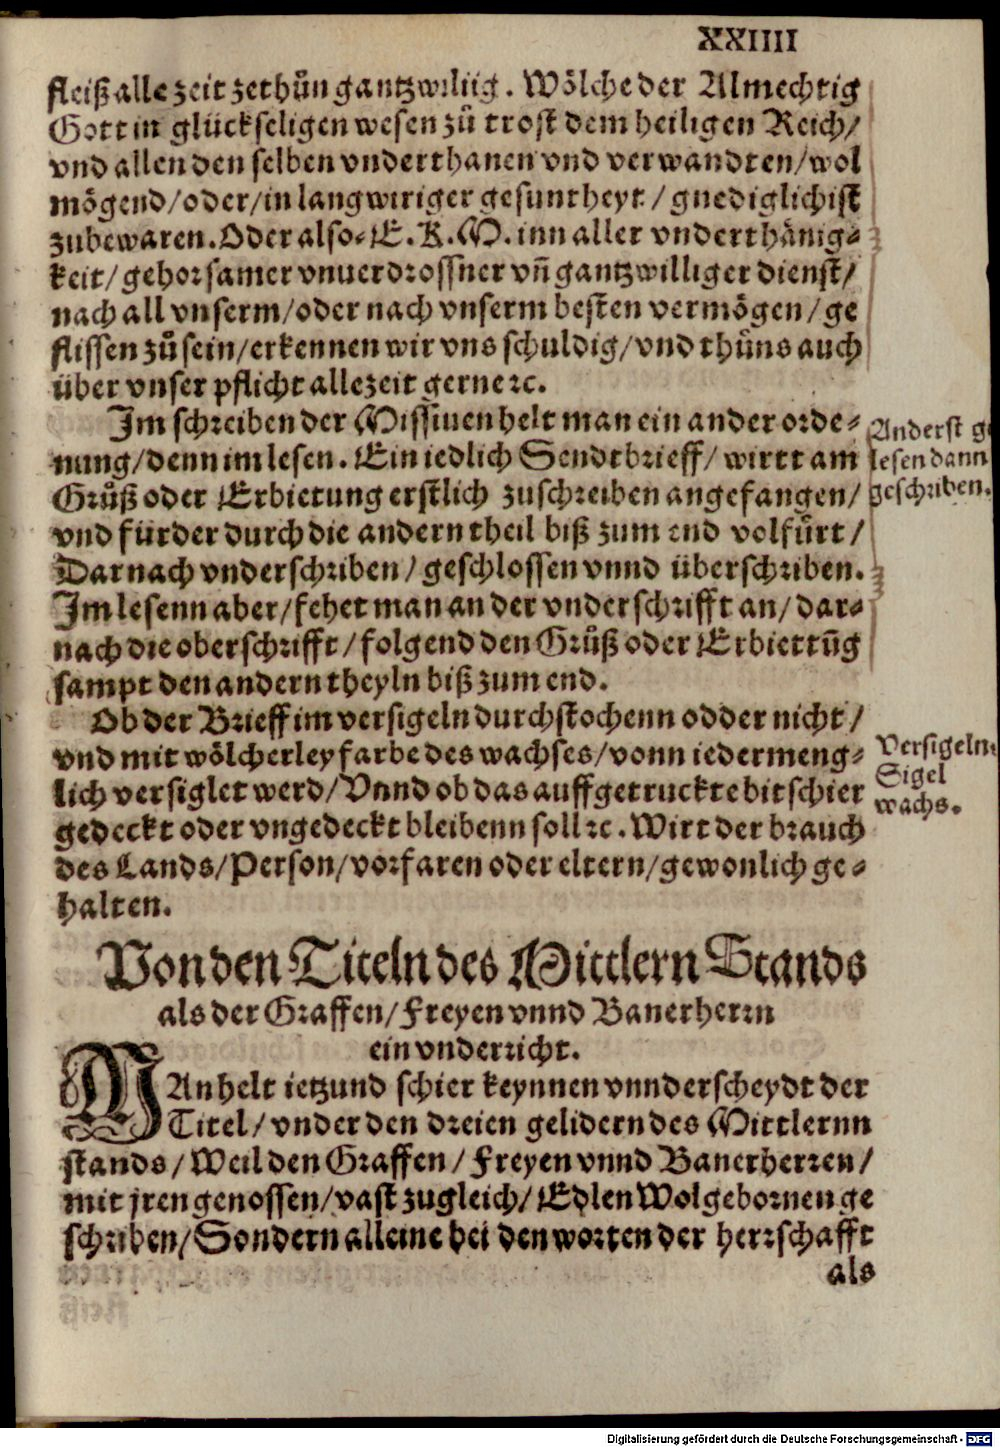 XXIIII
fleiß alle zeit zethůn gantzwillig. Wölche der Almechtig
Gott in glückseligen wesen zů trost dem heiligen Reich/
vnd allen den selben vnderthanen vnd verwandten/wol
mögend/oder/in langwiriger gesuntheyt/gnediglichist
zubewaren. Oder also. E. K. M. inn aller vnderthänig⸗
keit/gehorsamer vnuerdrossner vñ gantzwilliger dienst/
nach all vnserm/oder nach vnserm besten vermögen/ge
flissen zů sein/erkennen wir vns schuldig/vnd thůns auch
über vnser pflicht allezeit gerne ꝛc.
Im schreiben der Missiuen helt man ein ander orde⸗
nung/denn im lesen. Ein iedlich Sendtbrieff/wirtt am
Grůß oder Erbietung erstlich zuschreiben angefangen/
vnd fürder durch die andern theil biß zum end volfürt/
Darnach vnderschriben/geschlossen vnnd überschriben.
Im lesenn aber/fehet man an der vnderschrifft an/dar⸗
nach die oberschrifft/folgend den Grůß oder Erbiettũg
sampt den andern theyln biß zum end.
Anderst ge
lesen dann
geschriben.
Ob der Brieff im versigeln durchstochenn odder nicht/
vnd mit wölcherley farbe des wachses/vonn iedermeng⸗
lich versiglet werd/Vnnd ob das auffgetruckte bitschier
gedeckt oder vngedeckt bleibenn soll ꝛc. Wirt der brauch
des Lands/Person/vorfaren oder eltern/gewonlich ge⸗
halten.
Versigeln.
Sigel
wachs.
Von den Titeln des Mittlern Stands
als der Graffen/Freyen vnnd Banerherrn
ein vnderricht.
MAn helt ietzund schier keynnen vnnderscheydt der
Titel/vnder den dreien gelidern des Mittlernn
stands/Weil den Graffen/Freyen vnnd Banerherren/
mit jren genossen/vast zugleich/Edlen Wolgebornen ge
schriben/Sondern alleine bei den worten der herrschafft
als
Digitalisierung gefördert durch die Deutsche Forschungsgemeinschaft - DFG